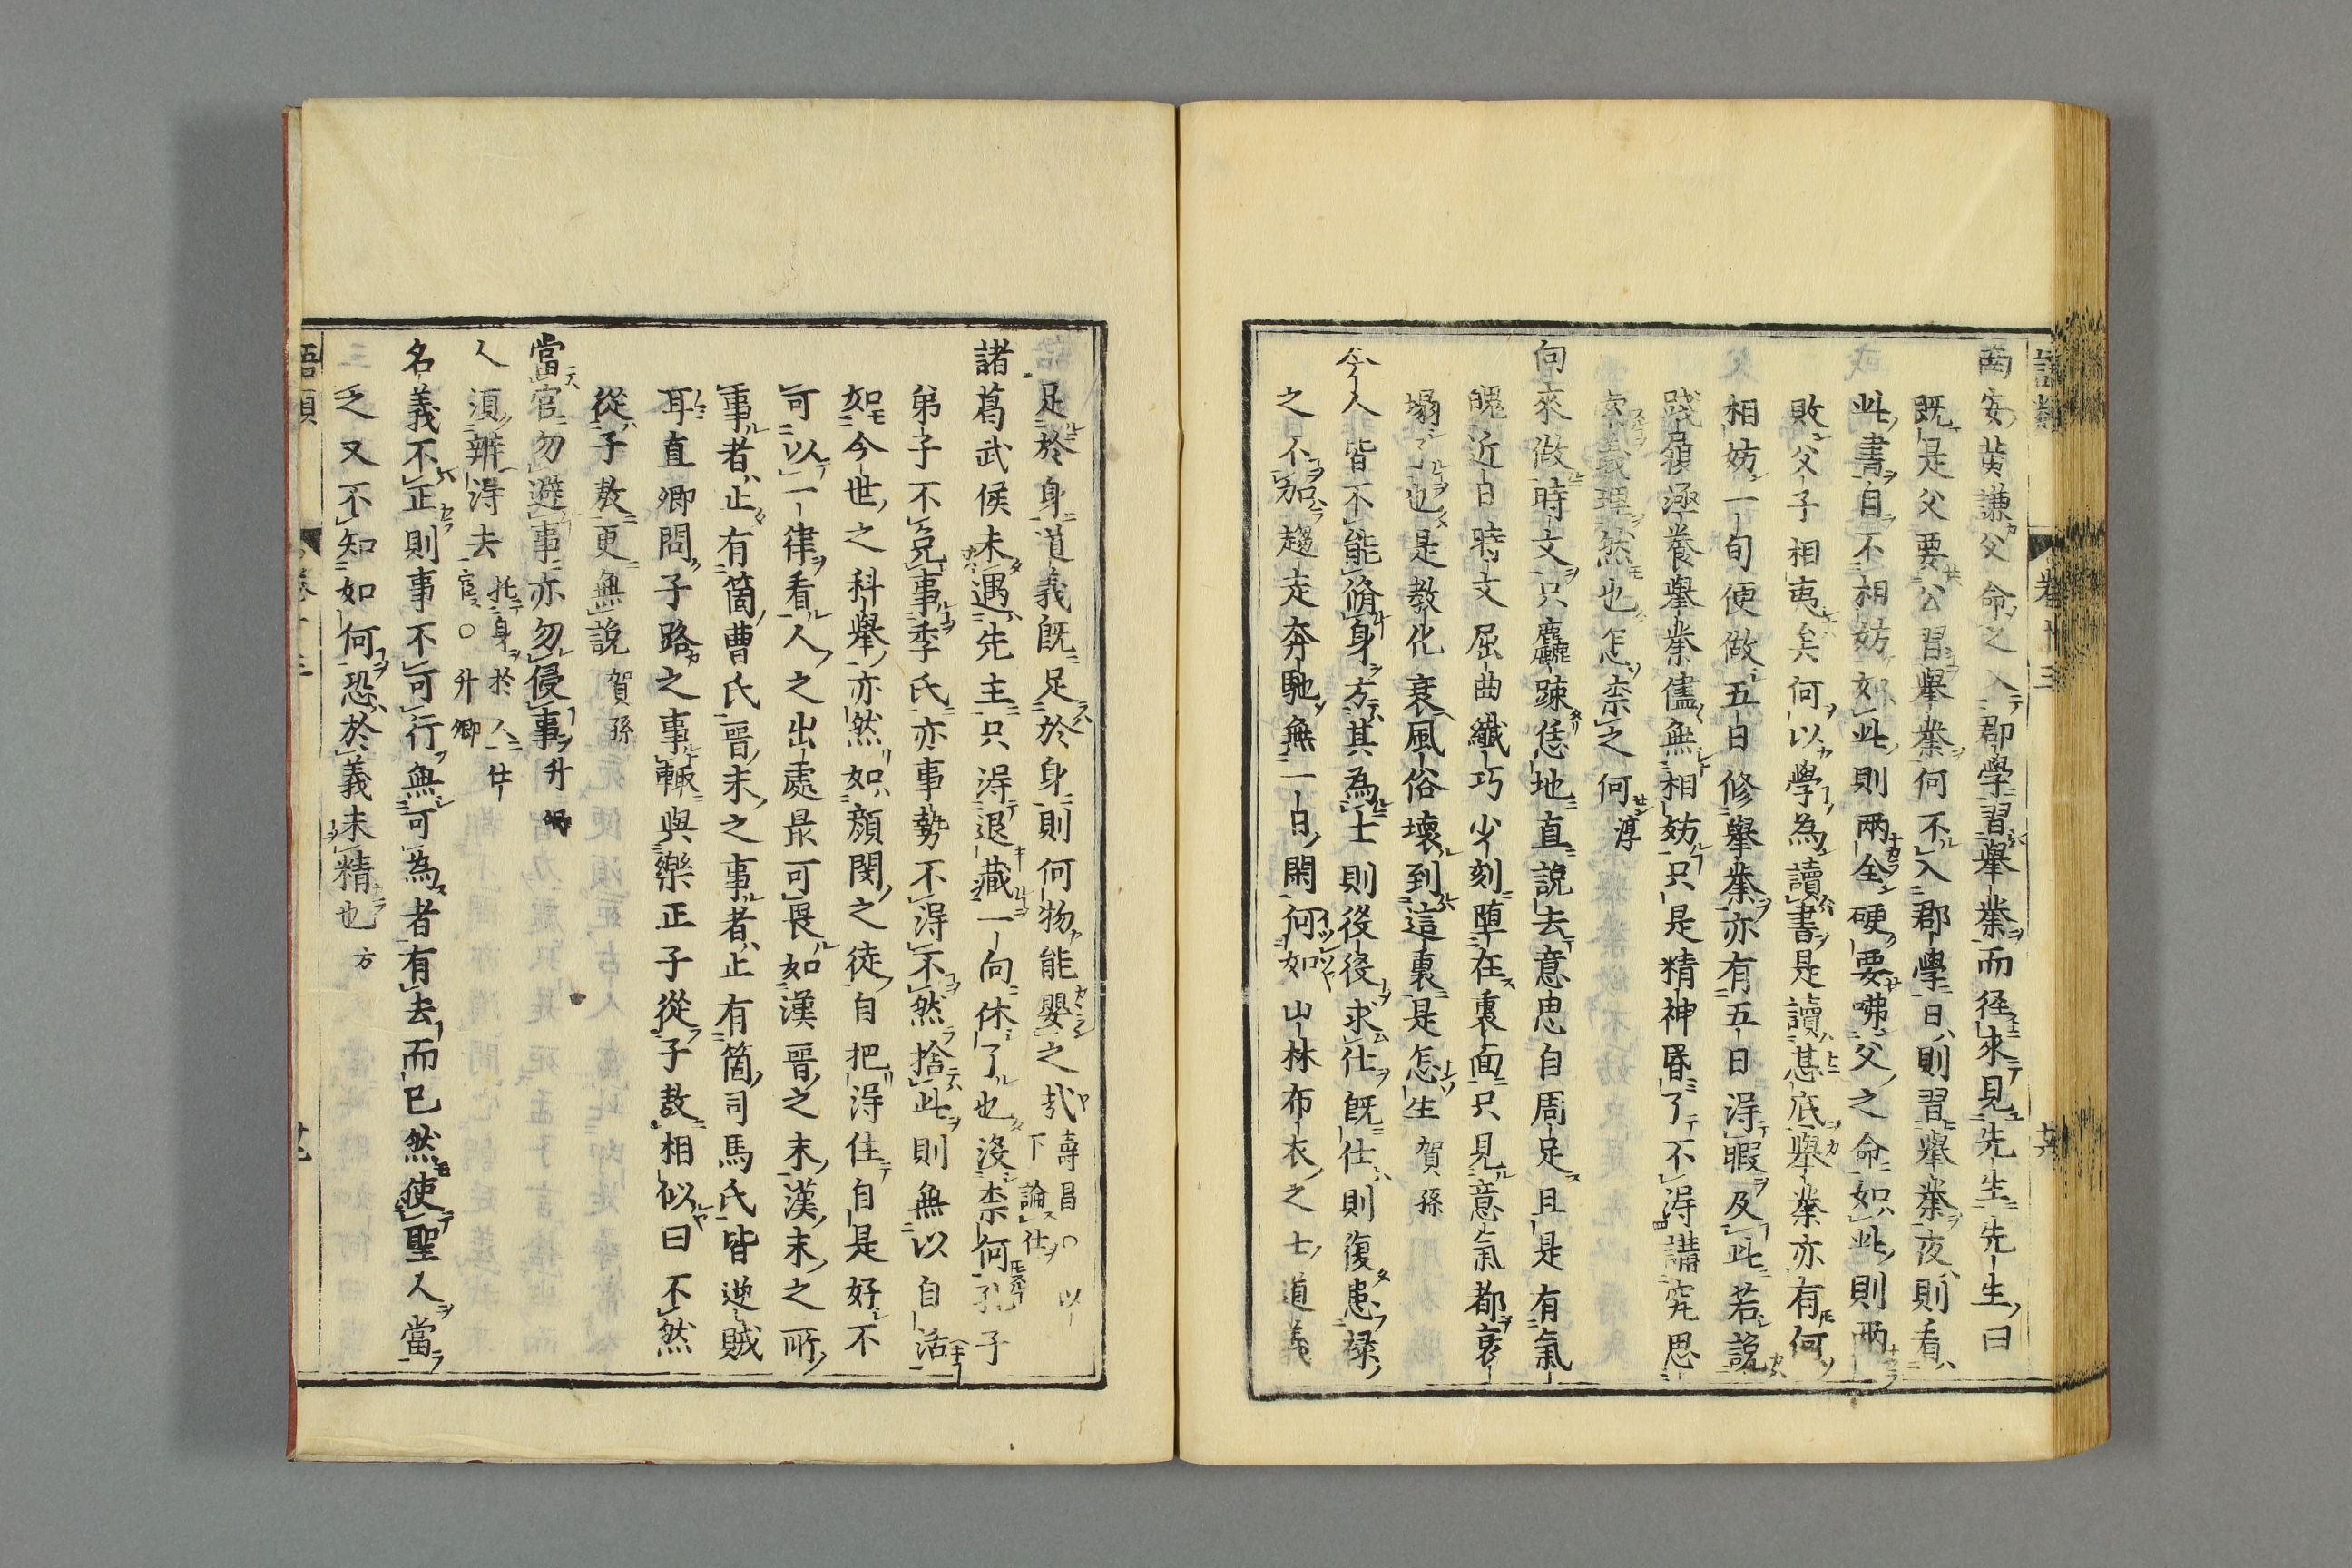 語類 卷十三 廿六
南安黃謙父命之入郡學習舉業而徑來見先生先生曰
既是父要公習舉業何不入郡學日則習舉業夜則看
此書自不相妨如此則兩全硬要咈父之命如此則兩
敗父子相夷矣何以學為讀書是讀甚底舉業亦有何
相妨一旬便做五日修舉業亦有五日得暇及此若說
踐履涵養舉業儘無相妨只是精神昏了不得講究思
索義理然也怎柰之何淳
向來做時文只麤疎恁地直說去意思自周足且是有氣
魄近日時文屈曲纖巧少刻墮在裏面只見意氣都衰
塌了也是教化衰風俗壞到這裏是怎生賀孫
今人皆不能脩身方其為士則役役求仕既仕則復患祿
之不加趨走奔馳無一日閑何如山林布衣之士道義
足於身道義既足於身則何物能嬰之哉壽昌○以下論仕
諸葛武侯未遇先主只得退藏一向休了也沒柰何孔子
弟子不免事季氏亦事勢不得不然捨此則無以自活
如今世之科舉亦然如顏閔之徒自把得住自是好不
可以一律看人之出處最可畏如漢晉之末漢末之所
事者止有箇曹氏晉末之事者止有箇司馬氏皆逆賊
耳直卿問子路之事輒與樂正子從子敖相似曰不然
從子敖更無說賀孫
當官勿避事亦勿侵事升卿
人須辨得去托身於人仕宦○升卿
名義不正則事不可行無可為者有去而已然使聖人當
之又不知如何恐於義未精也方
語類